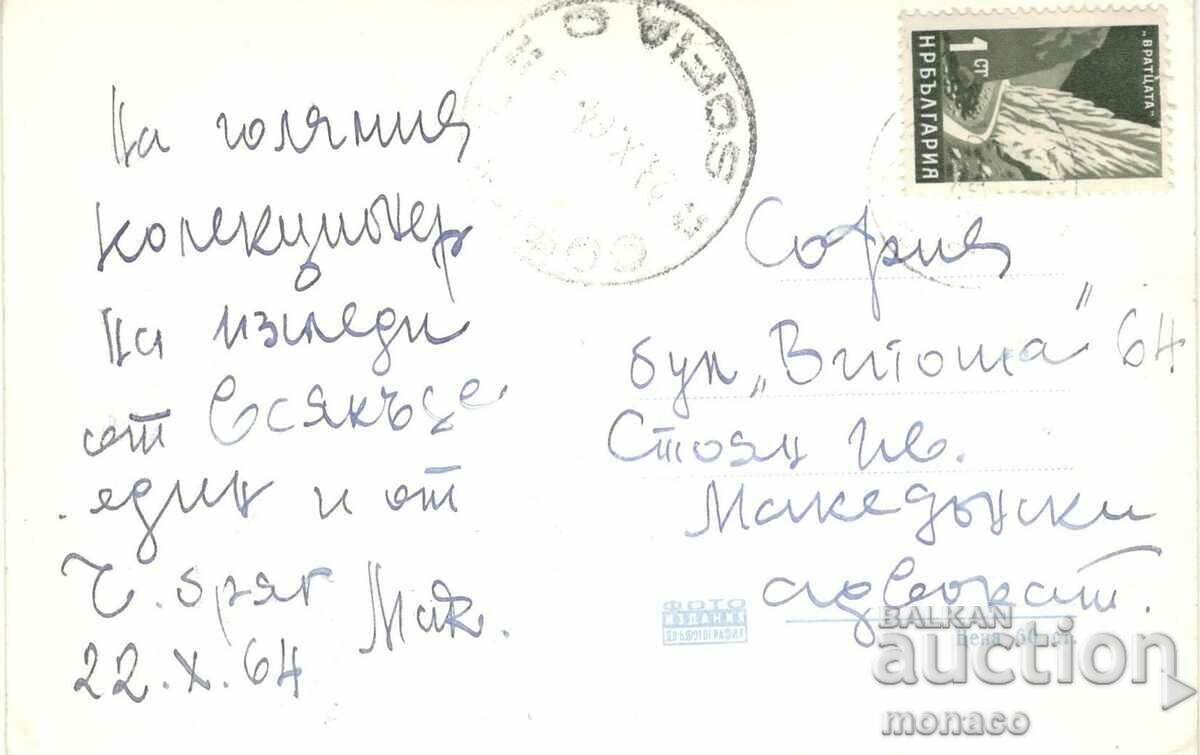 На големия
колекционер
на изгледи
от всякъде
един и от
Сл. бряг
Мак.
22.X.64
SOFIA
1 СТ
НР БЪЛГАРИЯ
„ВРАТЦАТА"
София
бул „Витоша" 64
Стоян Ив.
Македонски
адвокат.
ФОТО
ИЗДАНИЯ
ДП БЪЛГ. ФОТОГРАФИЯ
Цена 60 ст.
BALKAN
auction
monaco